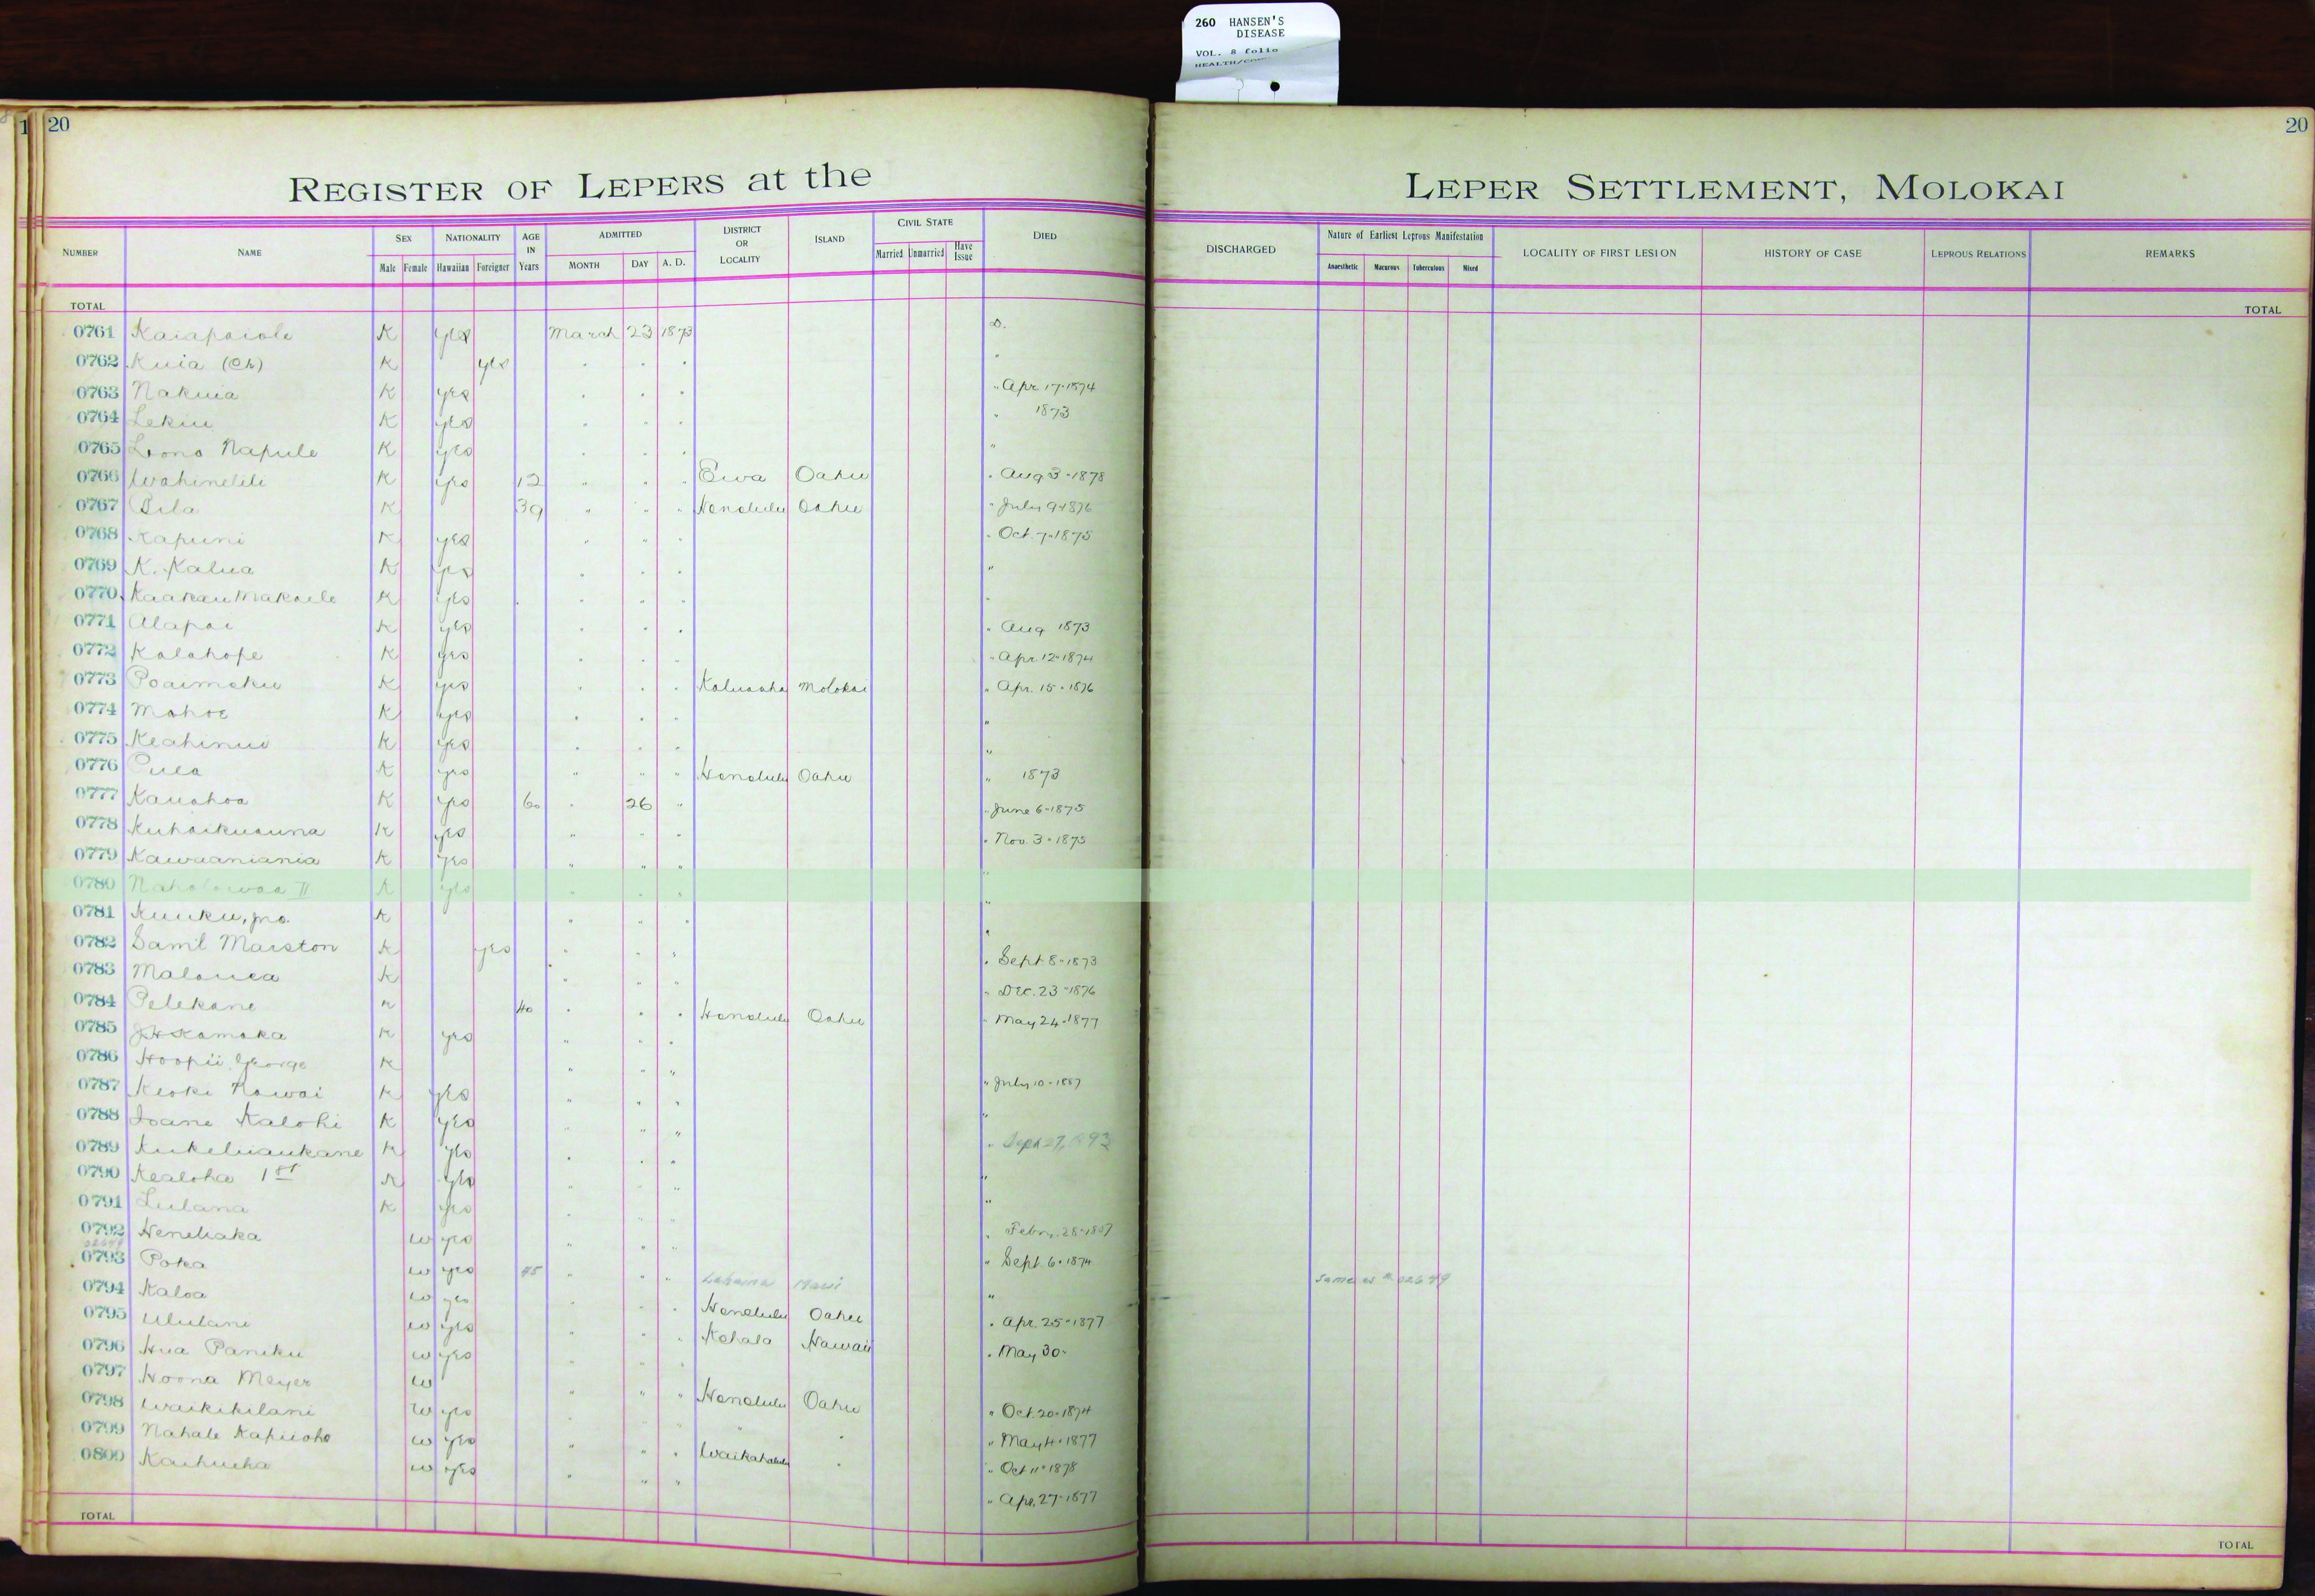 260 HANSEN'S
DISEASE
VOL. 8 folio
20
20
REGISTER OF LEPERS at the LEPER SETTLEMENT, MOLOKAI
NUMBER NAME SEX Male Female NATIONALITY Hawaiian Foreigner AGE IN Years ADMITTED MONTH DAY A. D. DISTRICT OR LOCALITY ISLAND CIVIL STATE Married Unmarried Have Issue DIED DISCHARGED Nature of Earliest Leprous Manifestation Anaesthetic Macurous Tuberculous Mixed LOCALITY OF FIRST LESION HISTORY OF CASE LEPROUS RELATIONS REMARKS
TOTAL TOTAL
0761 Kaiapaiole K yes March 23 1873 D.
0762 Kuia (Ch) K yes . . . "
0763 Nakuia K yes . . . " Apr 17-1874
0764 Lekiu K yes . . . " 1873
0765 Lono Napule K yes . . . "
0766 Wahinelili K yes 12 " . " Ewa Oahu " Aug 3-1878
0767 Pila K 39 " " " Honolulu Oahu " July 9-1876
0768 Kapuni K yes " " . " Oct. 7-1875
0769 K. Kalua K yes . . . "
0770 Kaakau Makaele K yes . " . "
0771 Alapai K yes . . . " Aug 1873
0772 Kalahope K yes . . . " Apr. 12-1874
0773 Poaimoku K yes . . . Kaluaaha Molokai " Apr. 15-1876
0774 Mahoe K yes . . . "
0775 Keahinui K yes . . . "
0776 Pula K yes " " " Honolulu Oahu " 1873
0777 Kauahoa K yes 60 . 26 " " June 6-1875
0778 Kuhaikuauna K yes " . " " Nov. 3-1875
0779 Kawaaniania K yes " " "
0780 Naholowaa II K yes . . . "
0781 Kuuku, jno. K " " . "
0782 Saml Marston K yes . . " "
0783 Malanea K " " " " Sept 8-1873
0784 Pelekane K 40 . . . Honolulu Oahu " Dec. 23-1876
0785 J H Kamaka K yes " " " " May 24-1877
0786 Hoopii George K " " "
0787 Keoki Kawai K yes " . " " July 10-1887
0788 Ioane Kalohi K yes " " " "
0789 Kukeliaukane K yes . . " " Sept 27, 1893
0790 Kealoha 1st K yes " . " "
0791 Lulana K yes . " . "
0792 Heneliaka W yes " . " " Febr. 28-1887
02649
0793 Poka W yes 45 " " " Lahaina Maui " Sept. 6-1874 Same as # 02649
0794 Kaloa W yes . . . Honolulu Oahu "
0795 Ululani W yes " " . Kohala Hawaii " Apr. 25-1877
0796 Hua Paniku W yes . . . " May 30-
0797 Hoona Meyer W " " " Honolulu Oahu
0798 Waikikilani W yes . . . " " " Oct. 20-1874
0799 Nahale Kapuoho W yes " " . Waikahalulu " " May 4-1877
0800 Kaihueha W yes . " " " Oct 11-1878
" Apr. 27-1877
TOTAL TOTAL